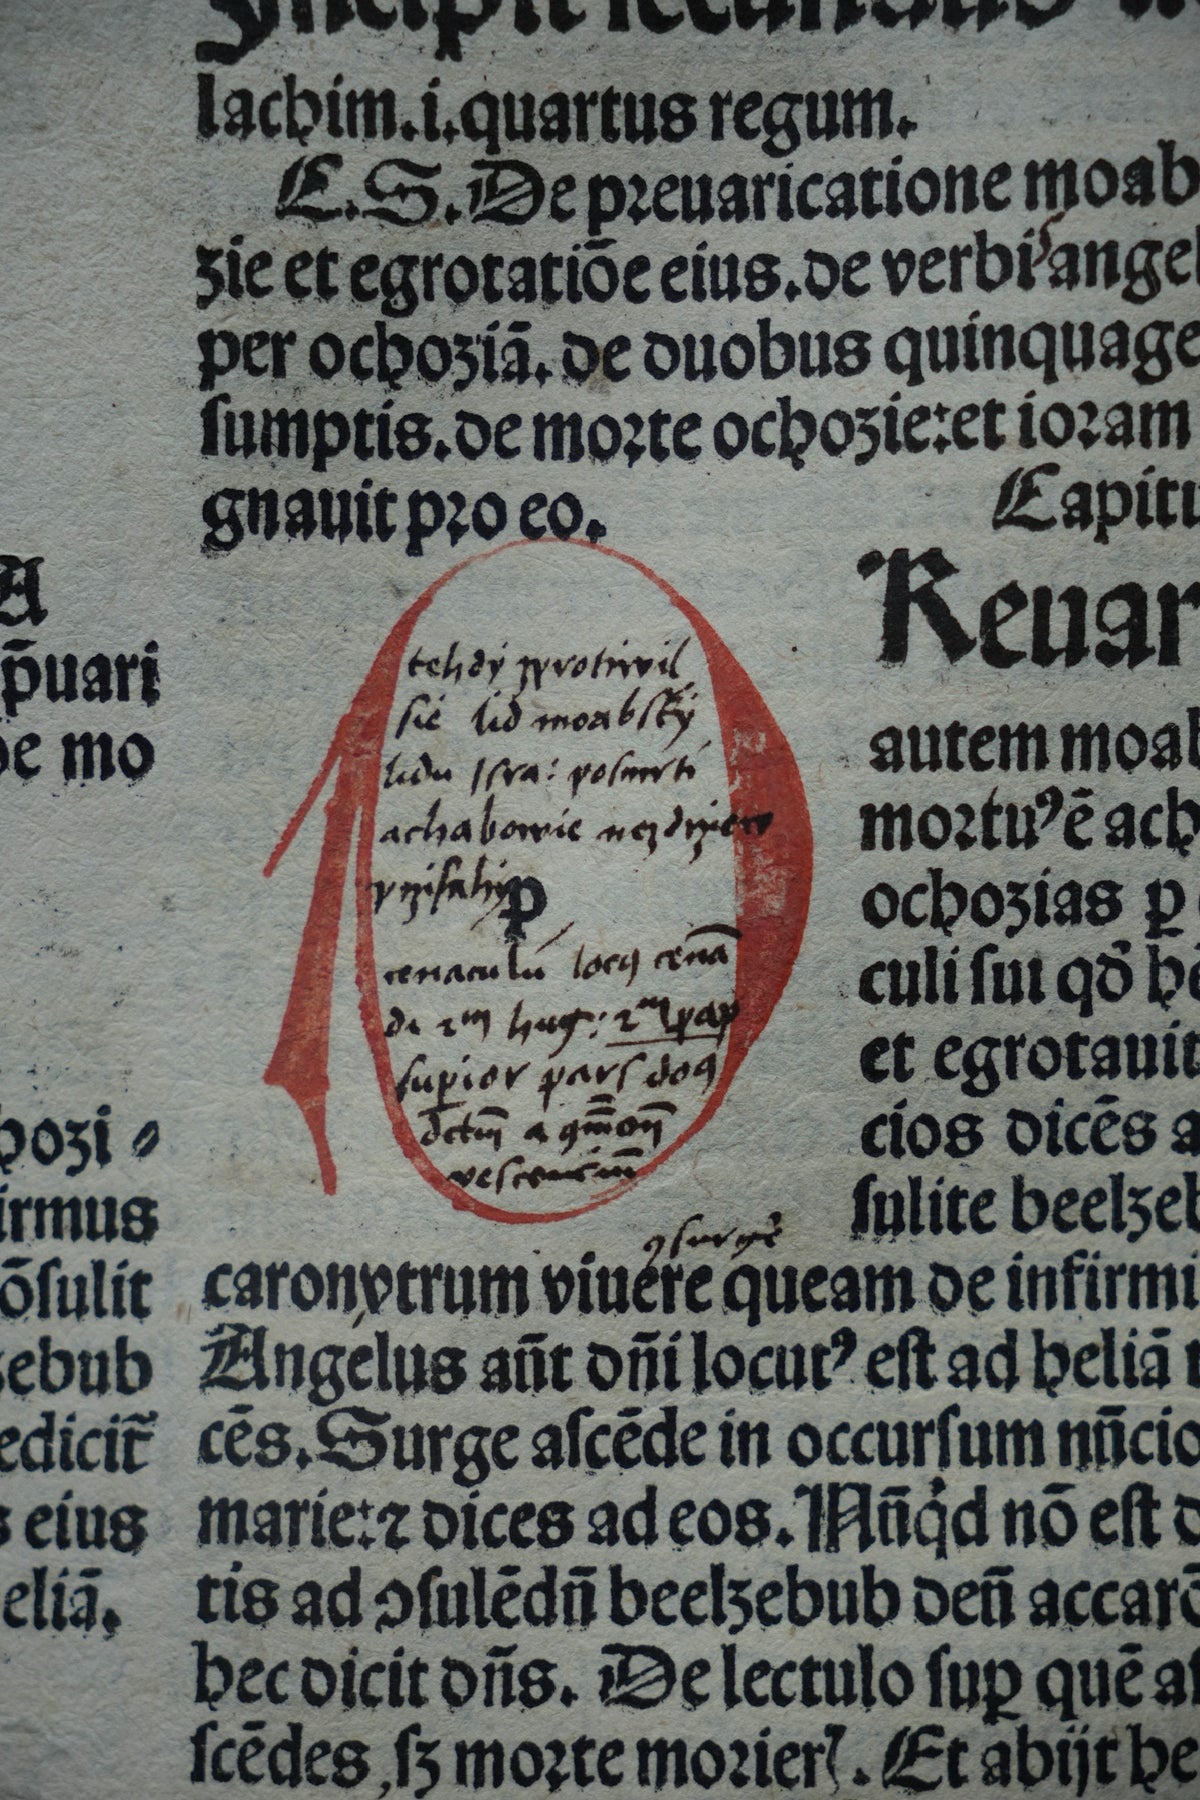 Incipit secundus
lachim.i.quartus regum.
C.S.De preuaricatione moab
zie et egrotatiōe eius.de verbis angel
per ochoziā.de duobus quinquage
sumptis.de morte ochozie:et ioram
gnauit pro eo.
Capitu
A
p̄uari
de mo
hozi
irmus
ōsulit
zebub
edicit̄
s eius
eliā.
tehdý protiwil
sie lid moabský
lidu Isra: po smrti
achabowie
p
cenaculū locꝰ
di 2m hug: 2m pap
supior pars
a
vescenciū
Reuar
autem moab
mortuꝰ ē ach
ochozias ꝑ
culi sui qd̓ he
et egrotauit
cios dicēs a
sulite beelzeb
ꝯsurgē
caron vtrum viuere queam de infirmi
Angelus aūt dn̄i locutꝰ est ad heliā
cēs.Surge ascēde in occursum nūcio
marie:⁊ dices ad eos.Nūqd nō est d
tis ad ↄsulēdū beelzebub deū accarō
hec dicit dn̄s. De lectulo suꝑ quē as
scēdes,sꝫ morte morier̄. Et abijt he